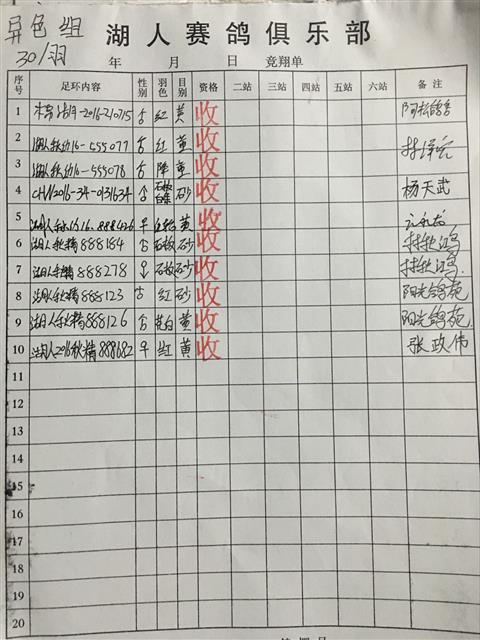 异色组
30/羽
湖人赛鸽俱乐部
年 月 日 竞翔单
序号 足环内容 性别 羽色 目别 资格 二站 三站 四站 五站 六站 备注
1 2016-210715 红 黄 收
2 湖人秋幼16-555077 红 黄 收
3 湖人秋幼16-555078 黄 收
4 CHN2016-34-0131634 砂 收 杨天武
5 16.888426 黄 收
6 湖人秋精888184 砂 收
7 湖人秋精888278 砂 收
8 湖人秋精888123 红 砂 收 阳光鸽苑
9 湖人秋精888126 花白 黄 收 阳光鸽苑
10 湖人2016秋精888682 红 黄 收 张政伟
11
12
13
14
15
16
17
18
19
20